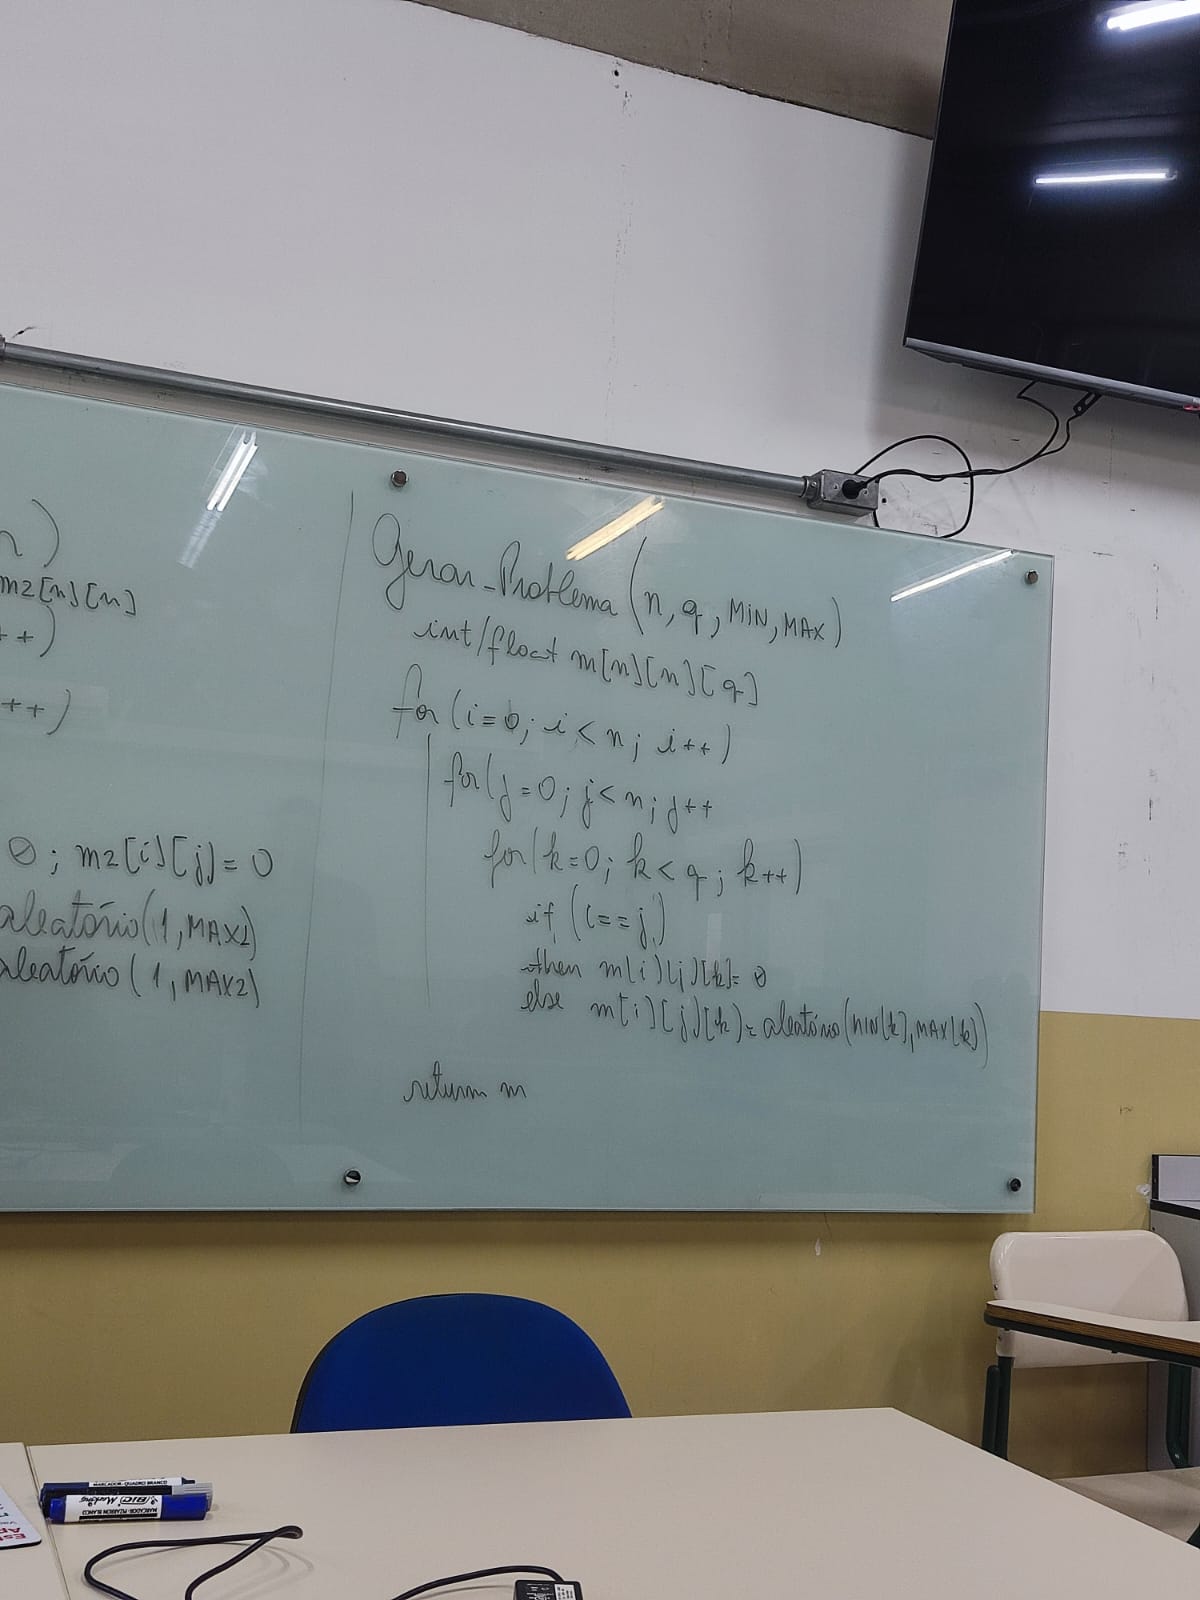 n)
m2[n][n]
++)
++)
0; m2[i][j]=0
aleatório(1, MAX1)
aleatório(1, MAX2)
Gerar_Problema(n, q, MIN, MAX)
int/float m[n][n][q]
for(i=0; i<n; i++)
for(j=0; j<n; j++
for(k=0; k<q; k++)
if (i==j)
then m[i][j][k]=0
else m[i][j][k]=aleatório(MIN[k],MAX[k])
return m
MARCADOR QUADRO BRANCO
BIC Marking
MARCADOR PIZARRON BLANCO